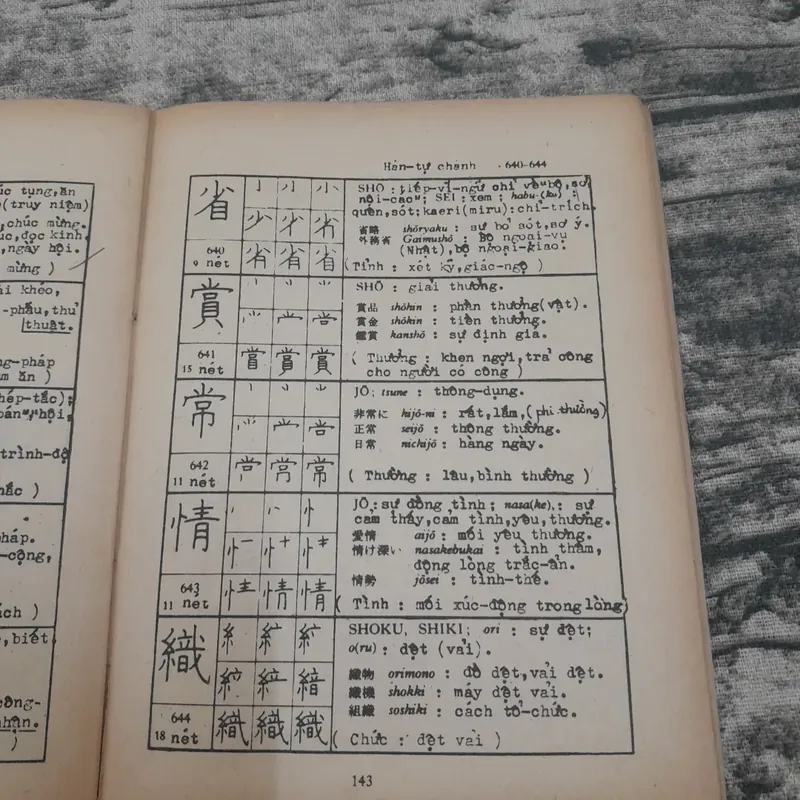 úc tụng, ăn
(truy niệm)
, chúc mừng.
úc, đọc kinh.
, ngày hội.
mừng )
ái khéo,
-phẩu, thư
thuật.
ng-pháp
m ăn )
hép-tắc);
trình-độ
ắc )
pháp.
-cộng,
ách )
, biết
công-
nhận.
)
Hán-tự chánh 640-644
省
640
9 nét
SHŌ : tiếp-vĩ-ngữ chỉ về "bộ, sở,
nội-các"; SEI : xem : habu-(ku) :
quên, sót; kaeri(miru) : chỉ-trích.
省略 shōryaku : sự bỏ sót, sơ ý.
外務省 Gaimushō : Bộ ngoại-vụ
(Nhật), bộ ngoại-giao.
(Tỉnh : xét kỹ, giác-ngộ )
賞
641
15 nét
SHŌ : giải thưởng.
賞品 shōhin : phần thưởng(vật).
賞金 shōkin : tiền thưởng.
鑑賞 kanshō : sự định giá.
( Thưởng : khen ngợi, trả công
cho người có công )
常
642
11 nét
JŌ; tsune : thông-dụng.
非常に hijō-ni : rất, lắm, (phi thường)
正常 seijō : thông thường.
日常 nichijō : hàng ngày.
( Thường : lâu, bình thường )
情
643
11 nét
JŌ : sự đồng tình ; nasa(ke), : sự
cảm thấy, cảm tình, yêu, thương.
愛情 aijō : mối yêu thương.
情け深い nasakebukai : tình thâm,
động lòng trắc-ẩn.
情勢 jōsei : tình-thế.
( Tình : mối xúc-động trong lòng)
織
644
18 nét
SHOKU, SHIKI; ori : sự dệt;
o(ru) : dệt (vải).
織物 orimono : đồ dệt, vải dệt.
織機 shokki : máy dệt vải.
組織 soshiki : cách tổ-chức.
( Chức : dệt vải )
143